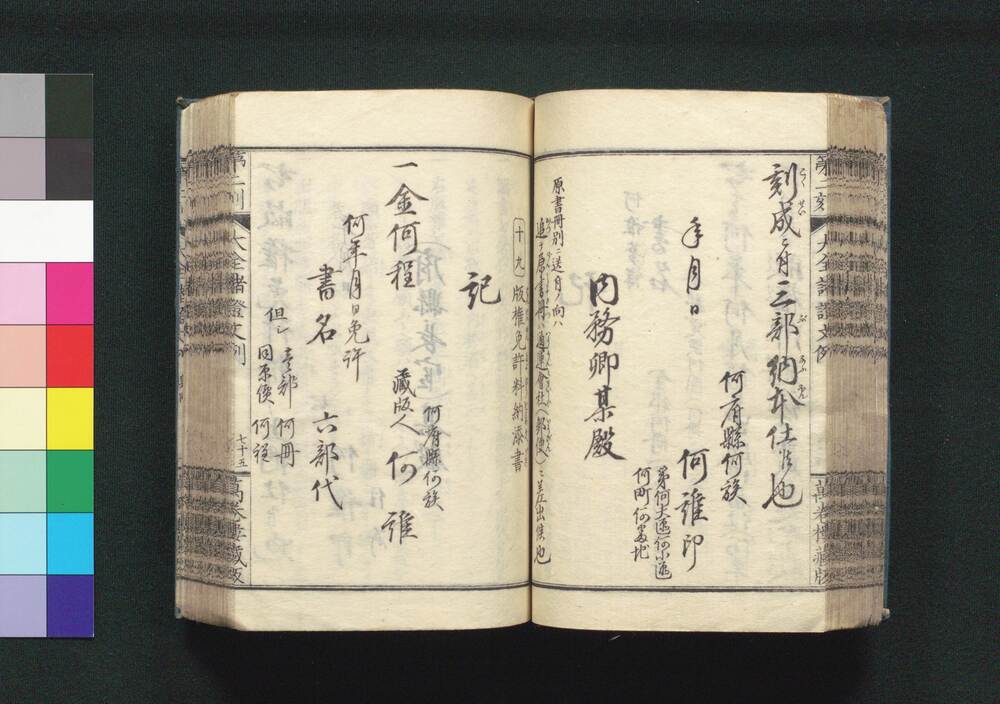 刻成ニ付三部納本仕候也
年月日
何府縣何族
何誰印
第何大区何小区
何町何番地
内務卿某殿
原書冊別ニ送付ノ向ハ
追テ原書冊ハ通運會社(郵便)ニ差出候也
十九 版權免許料納添書
記
一金何程
何府縣何族
藏版人 何誰
何年月日免許
書名 六部代
但シ壱部 何冊
同原價 何程
大全諸證文例
七十五
萬巻樓藏版